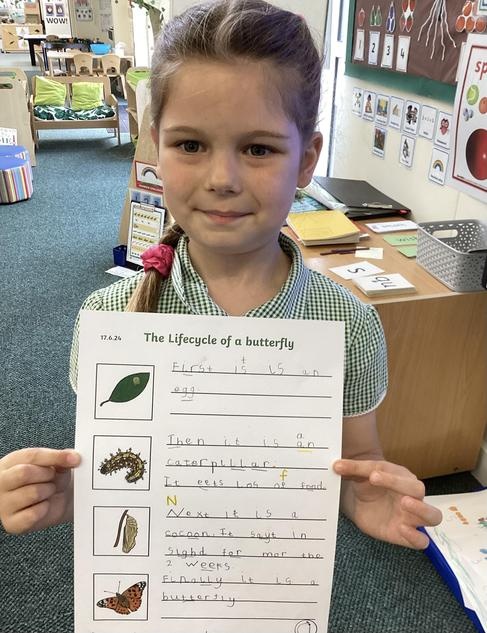 WOW!
1 2 3 4
sp
17.6.24 The Lifecycle of a butterfly
First it is an
egg.
Then it is an
caterpillar.
It eets los of food.
Next it is a
cocoon. It sayt in
sighd for mor the
2 weeks.
Finally it is a
butterfly